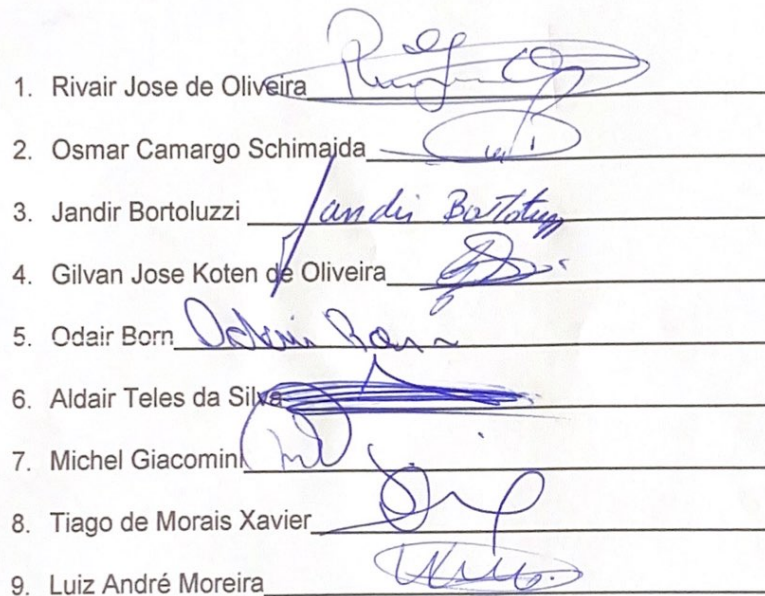 1. Rivair Jose de Oliveira
2. Osmar Camargo Schimaida
3. Jandir Bortoluzzi Jandir Bortoluzzi
4. Gilvan Jose Koten de Oliveira
5. Odair Born Odair Born
6. Aldair Teles da Silva
7. Michel Giacomini
8. Tiago de Morais Xavier
9. Luiz André Moreira